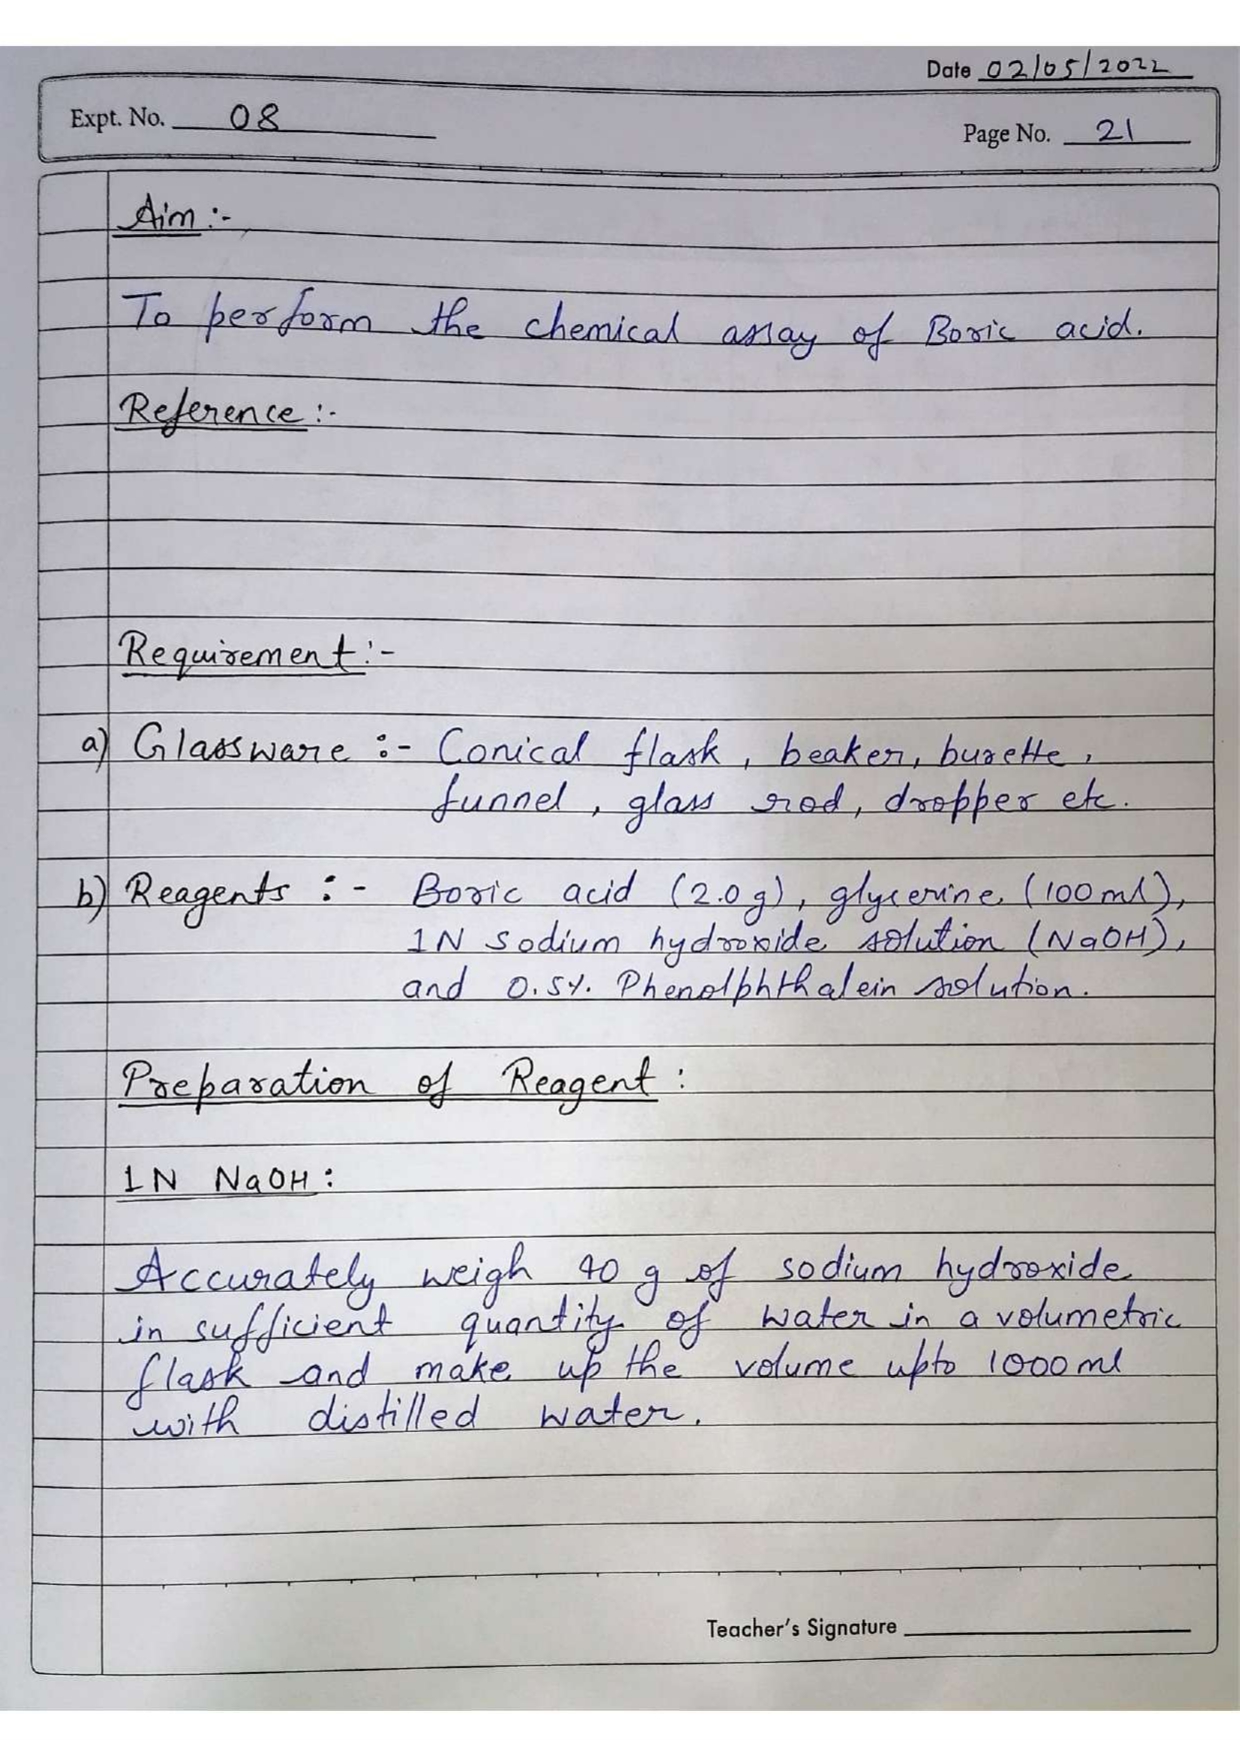 Date 02/05/2022
Expt. No. 08
Page No. 21
Aim :-
To perform the chemical assay of Boric acid.
Reference :-
Requirement :-
a) Glassware :- Conical flask, beaker, burette,
funnel, glass rod, dropper etc.
b) Reagents :- Boric acid (2.0 g), glycerine (100 ml),
1N sodium hydroxide solution (NaOH),
and 0.5%. Phenolphthalein solution.
Preparation of Reagent :
1N NaOH :
Accurately weigh 40 g of sodium hydroxide
in sufficient quantity of water in a volumetric
flask and make up the volume upto 1000 ml
with distilled water.
Teacher's Signature